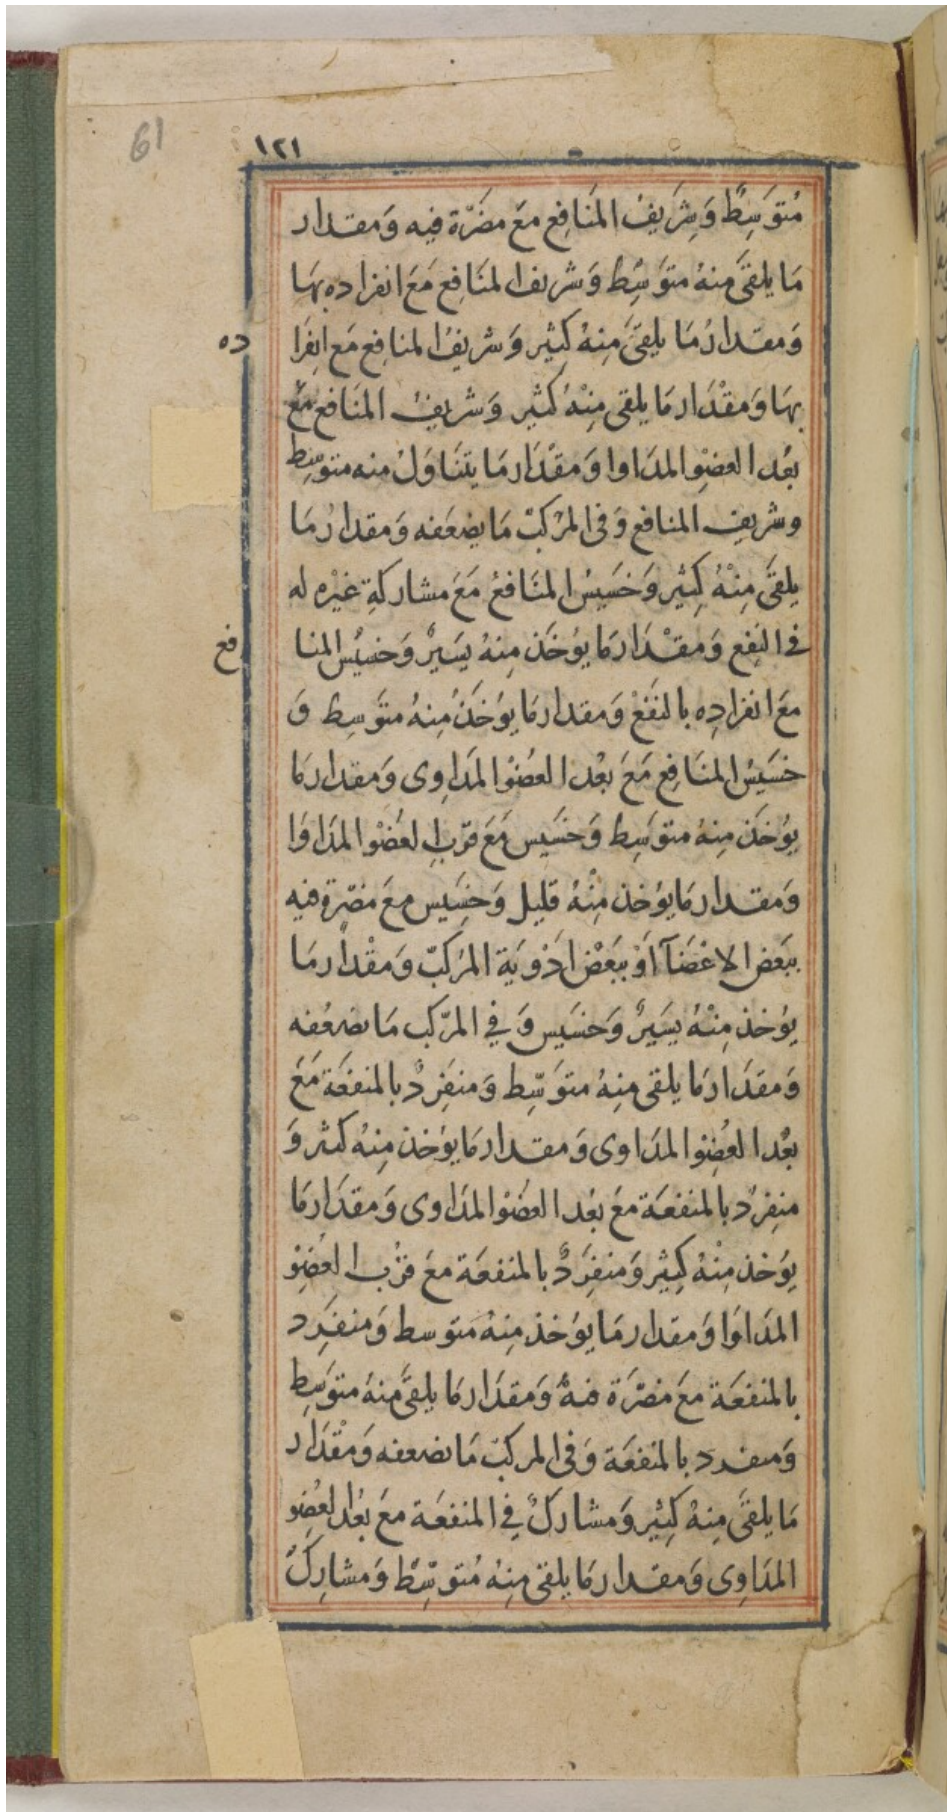 61
١٢١
مُتوَسِطًا وَشَريفُ المَنَافِع مَعَ مضَرّة فيه وَمقدار
مَا يلقىَ مِنهُ متوَسِّط وَشريف المنَافِع مَعَ انفراده بهَا
وَمقدارُ مَا يلقىَ مِنهُ كِثير وَشريفُ المنافِع مَع انِفَرا
ده
بهَا وَمقْدَار مَا يلقى مِنْهُ كثير وَشريفُ المنَافع مَعَ
بعُد العضْوِ المدَاوا وَمقْدَار مَا يتنَاوَلُ منه متوسِّط
وشريف المنافع وَفى المرْكبّ مَا يضعَفه وَمقدارُ مَا
يلقىَ مِنْهُ كِثير وَخسَيسُ المنَافعُ مَعَ مشاركةِ غيْره له
فى النفِع وَمقْدَار مَا يوُخَذ مِنهُ يسَيرٌ وَخسيُس المنا
فع
مَع انفرادِه بالنفَعْ وَمقدار مَا يوُخَذُ مِنهُ متوَسِط وَ
خسَيسُ المنَافِع مَعَ بعْد العضُوْ المدَاوِى وَمقدار مَا
يوُخذَ مِنهُ متوَسِط وَخسَيس مَع قرْبِ العُضْو المدَاوَا
وَمقدار مَا يوُخذ مِنْهُ قليل وَخسِيس مَع مَضرّة فيه
ببَعَض الاعْضَآ اَوْ ببَعْض ادَوِيَة المرُكبّ وَمقْدار مَا
يوُخذ مِنْهُ يسَيرٌ وَخسَيس وَ في المرّكب مَا يضعُفه
وَمقدَار مَا يلقى مِنهُ متوَسِّط وَمنفَرِدٌ بالمنفعَة مَعَ
بعُد العُضِوْ المدَاوى وَمقدار مَا يوُخذ مِنهُ كثر وَ
منفرِد بالمنفعَة مَعَ بعُد العضُوْ المدَاوى وَمقدَار مَا
يوَخذ مِنْهُ كِثير وَمنفِرَدٌ بالمنفعَة مَعَ قرُب العُضِوْ
المدَاوَا وَمقدار مَا يوُخذ مِنهُ متوسط وَمنفَرِد
بالمنفعَة مَعَ مَضرّة فيهُ وَمقدَار مَا يلقىَ مِنهُ متوَسِّط
وَمنفرد بالمنفعَة وَفى المركبّ مَا يضعفه وَمقْدَار
مَا يلقىَ مِنهُ كِثير وَمشارَكٌ فِي المنفعَة مَعَ بعُد العضِو
المدَاوِى وَمقدار مَا يلقى مِنهُ مُتوسِّطْ وَمشارِكٌ